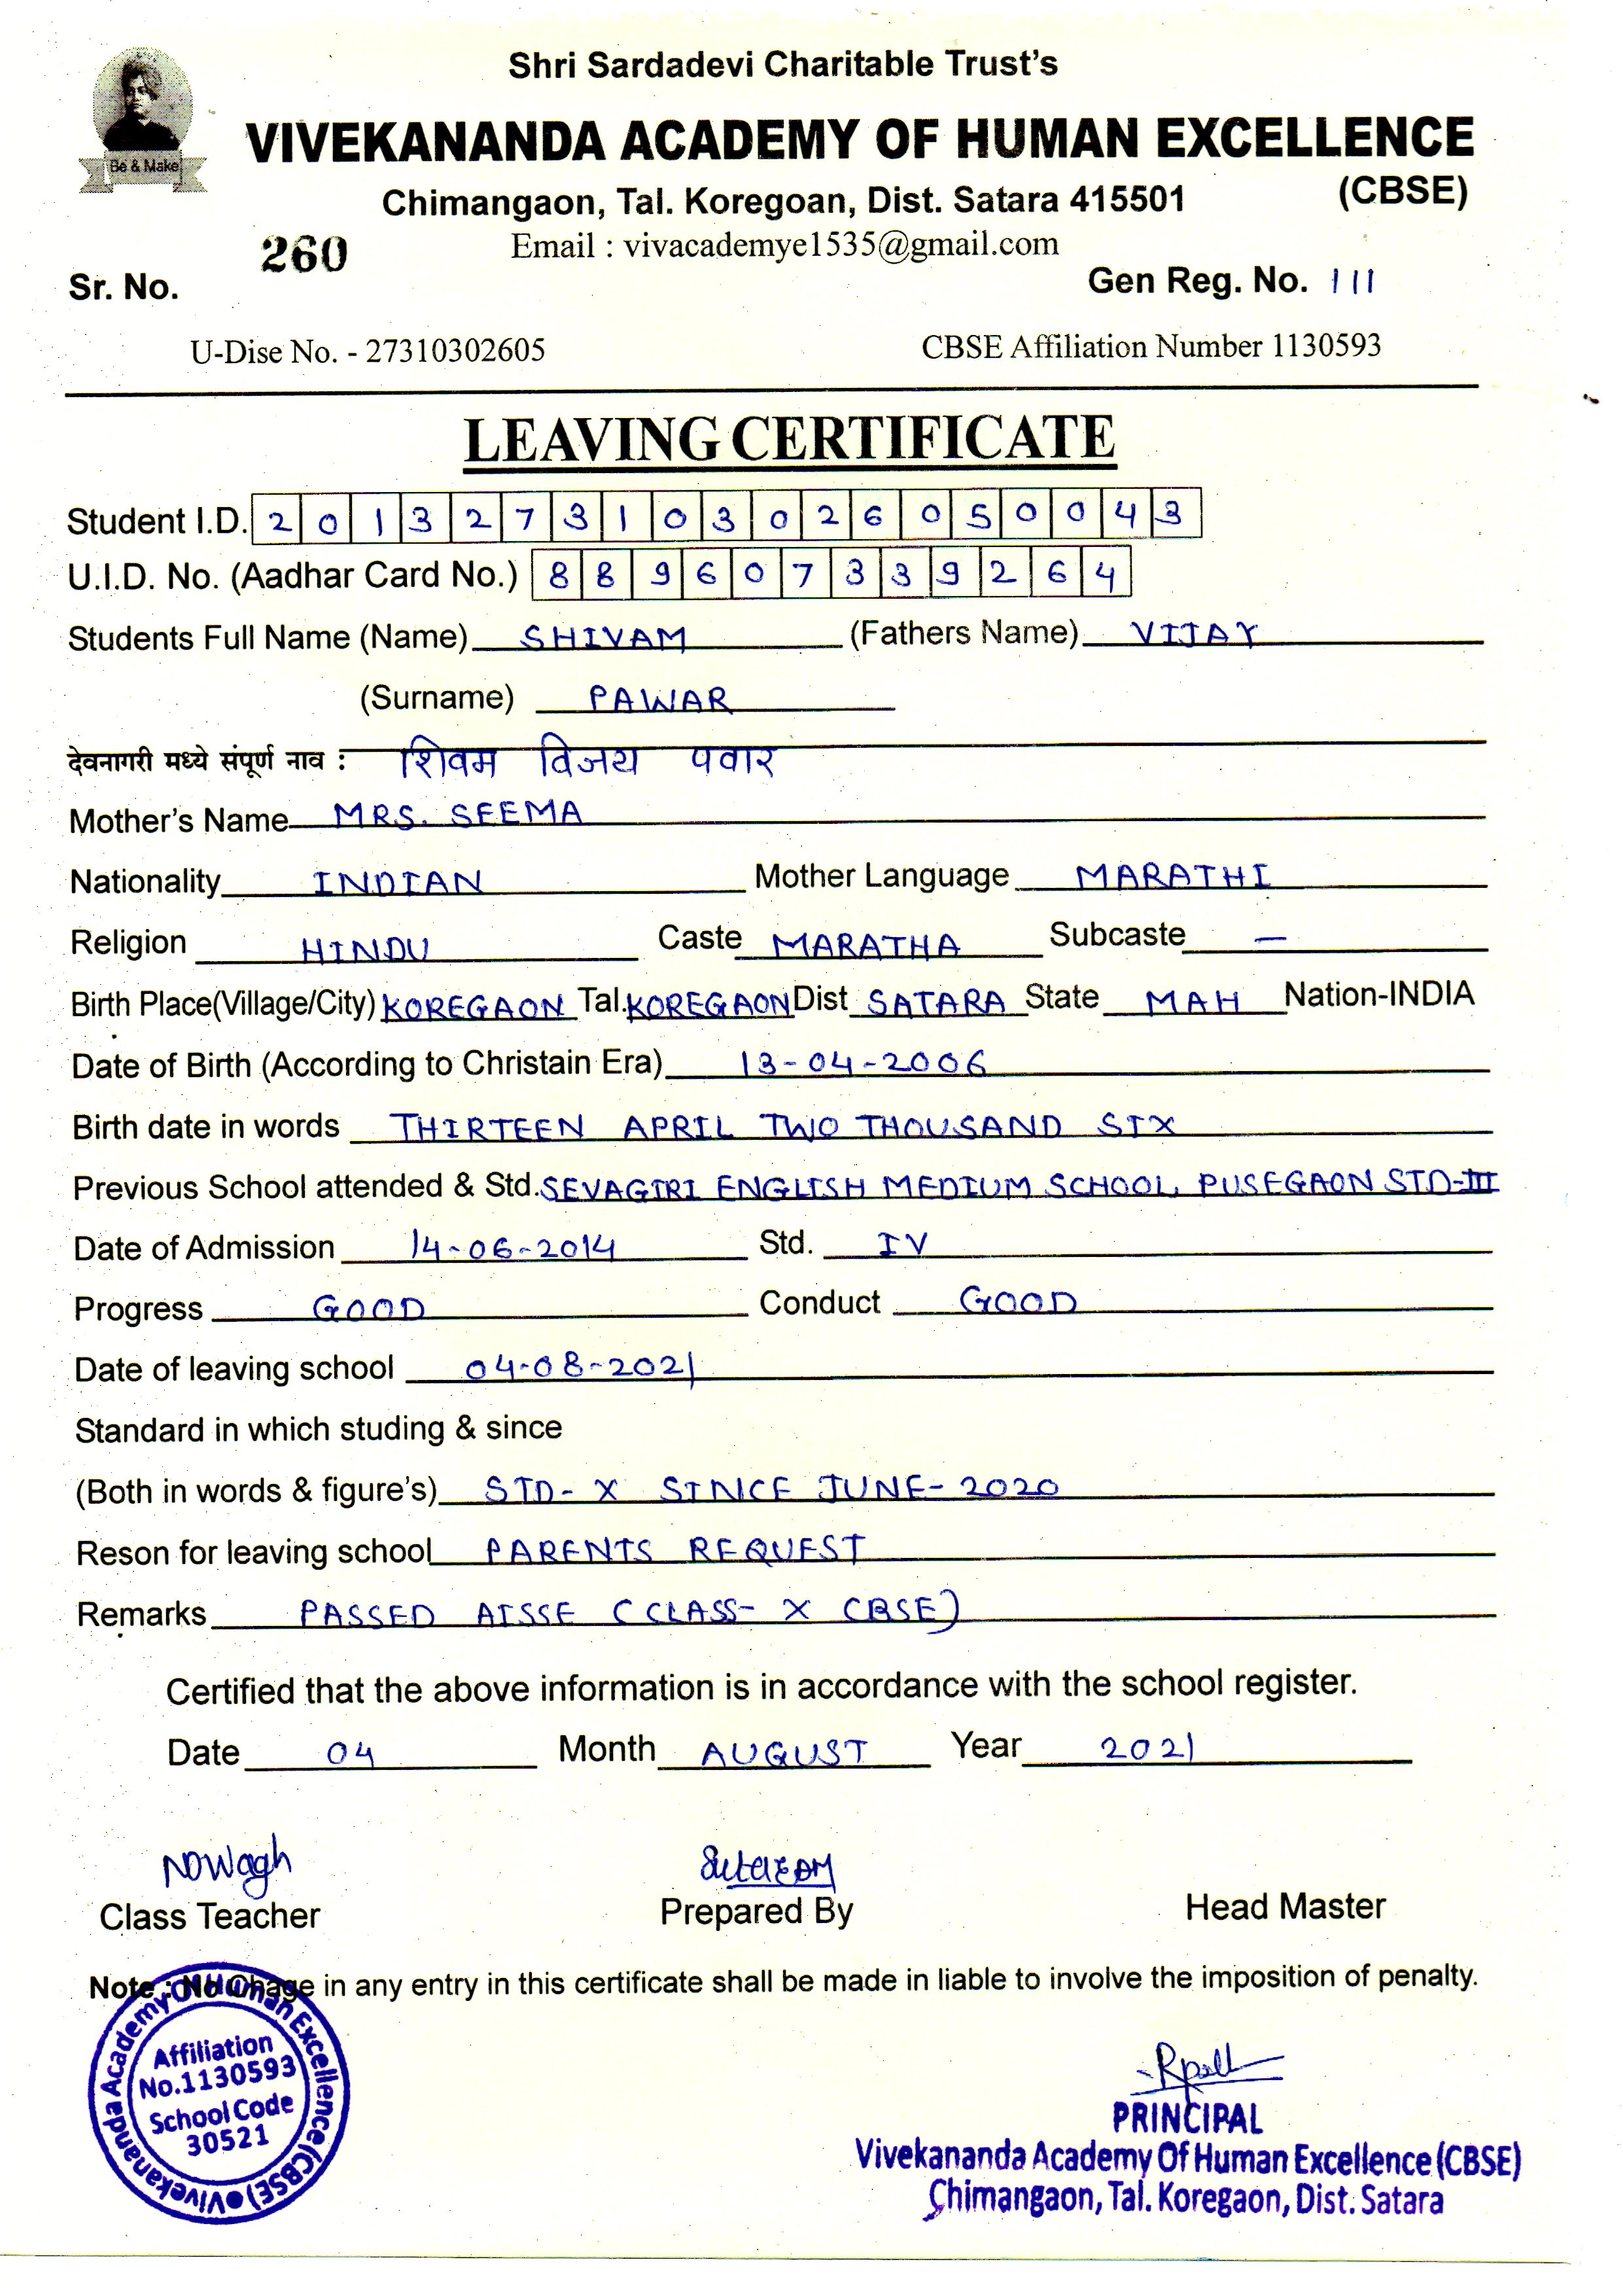 Shri Sardadevi Charitable Trust's
VIVEKANANDA ACADEMY OF HUMAN EXCELLENCE
Be & Make
Chimangaon, Tal. Koregoan, Dist. Satara 415501 (CBSE)
260 Email : vivacademye1535@gmail.com
Sr. No. Gen Reg. No. 111
U-Dise No. - 27310302605 CBSE Affiliation Number 1130593
LEAVING CERTIFICATE
Student I.D. 2013273103026050043
U.I.D. No. (Aadhar Card No.) 889607339264
Students Full Name (Name) SHIVAM (Fathers Name) VIJAY
(Surname) PAWAR
देवनागरी मध्ये संपूर्ण नाव : शिवम विजय पवार
Mother's Name MRS. SEEMA
Nationality INDIAN Mother Language MARATHI
Religion HINDU Caste MARATHA Subcaste —
Birth Place(Village/City) KOREGAON Tal. KOREGAON Dist SATARA State MAH Nation-INDIA
Date of Birth (According to Christain Era) 13-04-2006
Birth date in words THIRTEEN APRIL TWO THOUSAND SIX
Previous School attended & Std. SEVAGIRI ENGLISH MEDIUM SCHOOL, PUSEGAON STD-III
Date of Admission 14-06-2014 Std. IV
Progress GOOD Conduct GOOD
Date of leaving school 04-08-2021
Standard in which studing & since
(Both in words & figure's) STD- X SINCE JUNE- 2020
Reson for leaving school PARENTS REQUEST
Remarks PASSED AISSE (CLASS- X CBSE)
Certified that the above information is in accordance with the school register.
Date 04 Month AUGUST Year 2021
NDWagh
Class Teacher Prepared By Head Master
Note : No Chage in any entry in this certificate shall be made in liable to involve the imposition of penalty.
Vivekananda Academy Of Human Excellence (CBSE)
Affiliation
No.1130593
School Code
30521
PRINCIPAL
Vivekananda Academy Of Human Excellence (CBSE)
Chimangaon, Tal. Koregaon, Dist. Satara